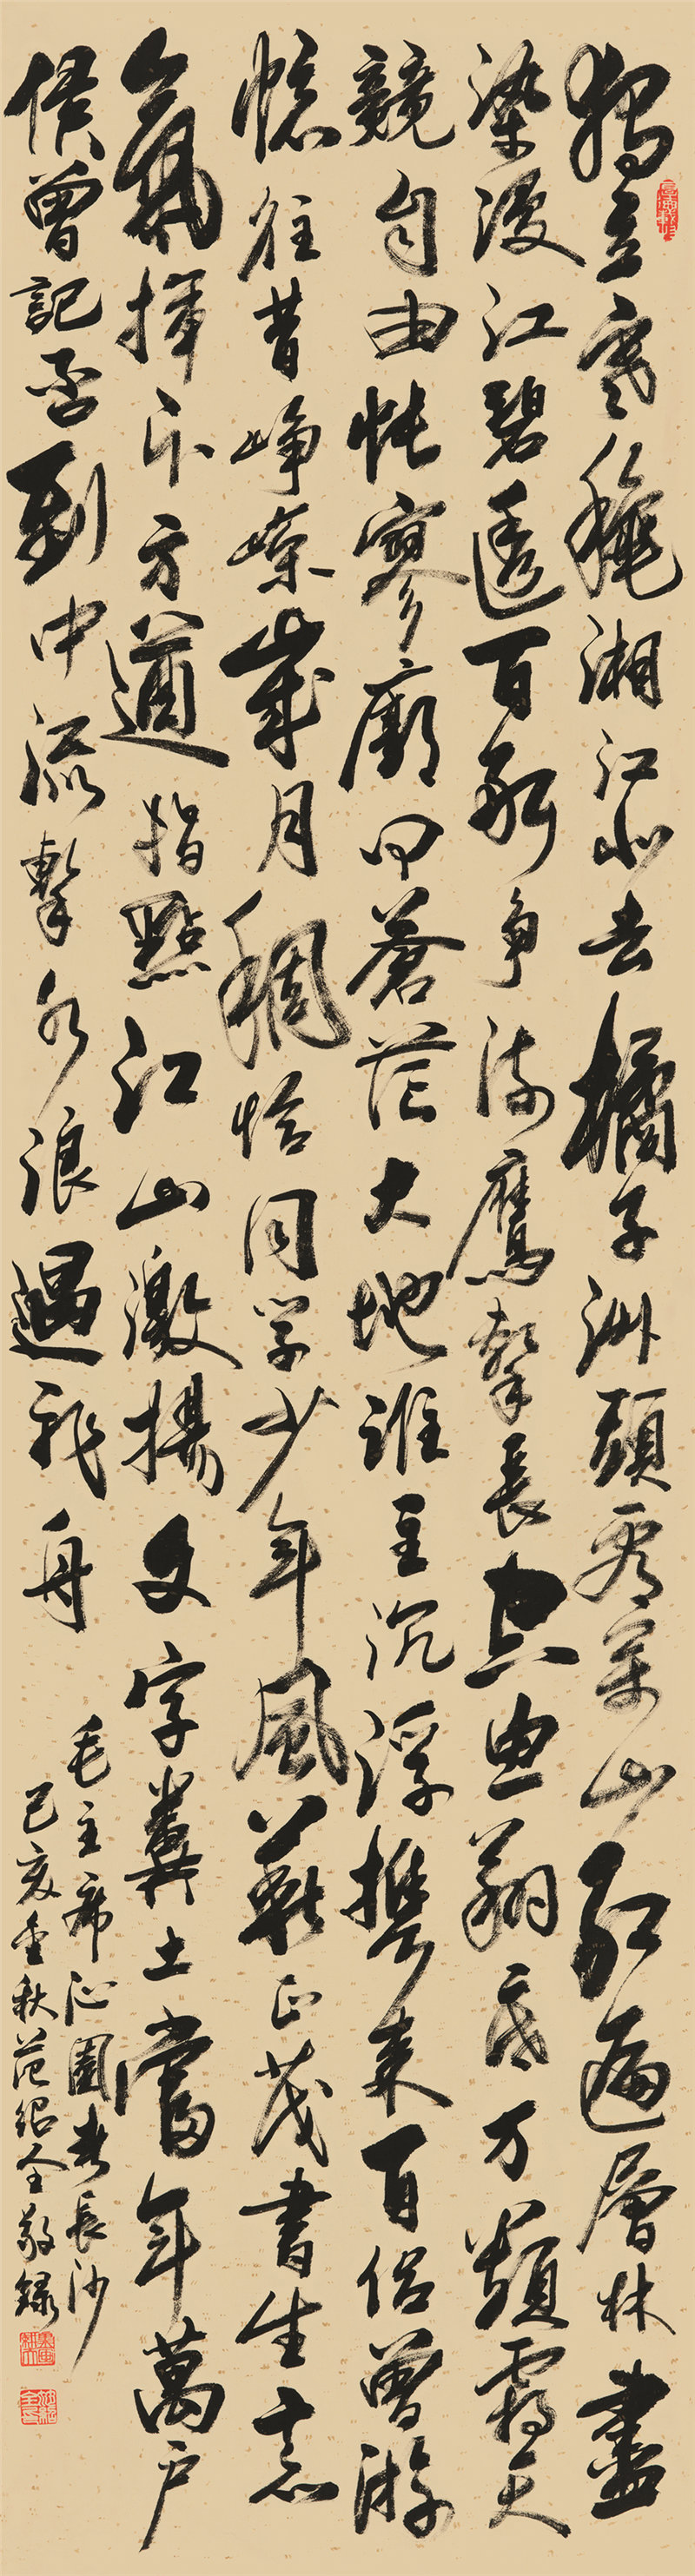 獨立寒穐湘江北去橘子洲頭看萬山紅遍層林盡
染漫江碧透百舸争流鷹擊長空魚翔底万類霜天
競自由悵寥廓問蒼茫大地誰主沉浮攜来百侣曾游
憶往昔崢嶸歲月稠恰同学少年風華正茂書生意
氣揮斥方遒指點江山激揚文字糞土當年萬户
侯曾記否到中流擊水浪遏飛舟
毛主席沁園春長沙
己亥金秋范紹全敬録